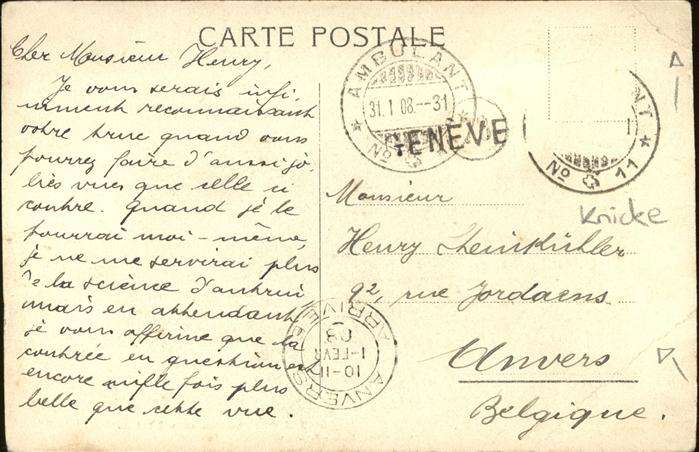 CARTE POSTALE
Cher Monsieur Henry,
Je vous serais infi-
niment reconnaissant
votre truc quand vous
pourrez faire d'aussi jo-
lies vues que celle ci
contre. Quand je le
pourrai moi-même,
je ne me servirai plus
de la science d'autrui
mais en attendant
je vous affirme que la
contrée en question est
encore mille fois plus
belle que cette vue.
AMBULANT
31.1.08.--31
No
GENÈVE
ANT
No 11
Knicke
Monsieur
Henry Steinkühler
92, rue Jordaens
Anvers
Belgique.
ANVERS
10-11
1-FEVR
08
ARRIVEE